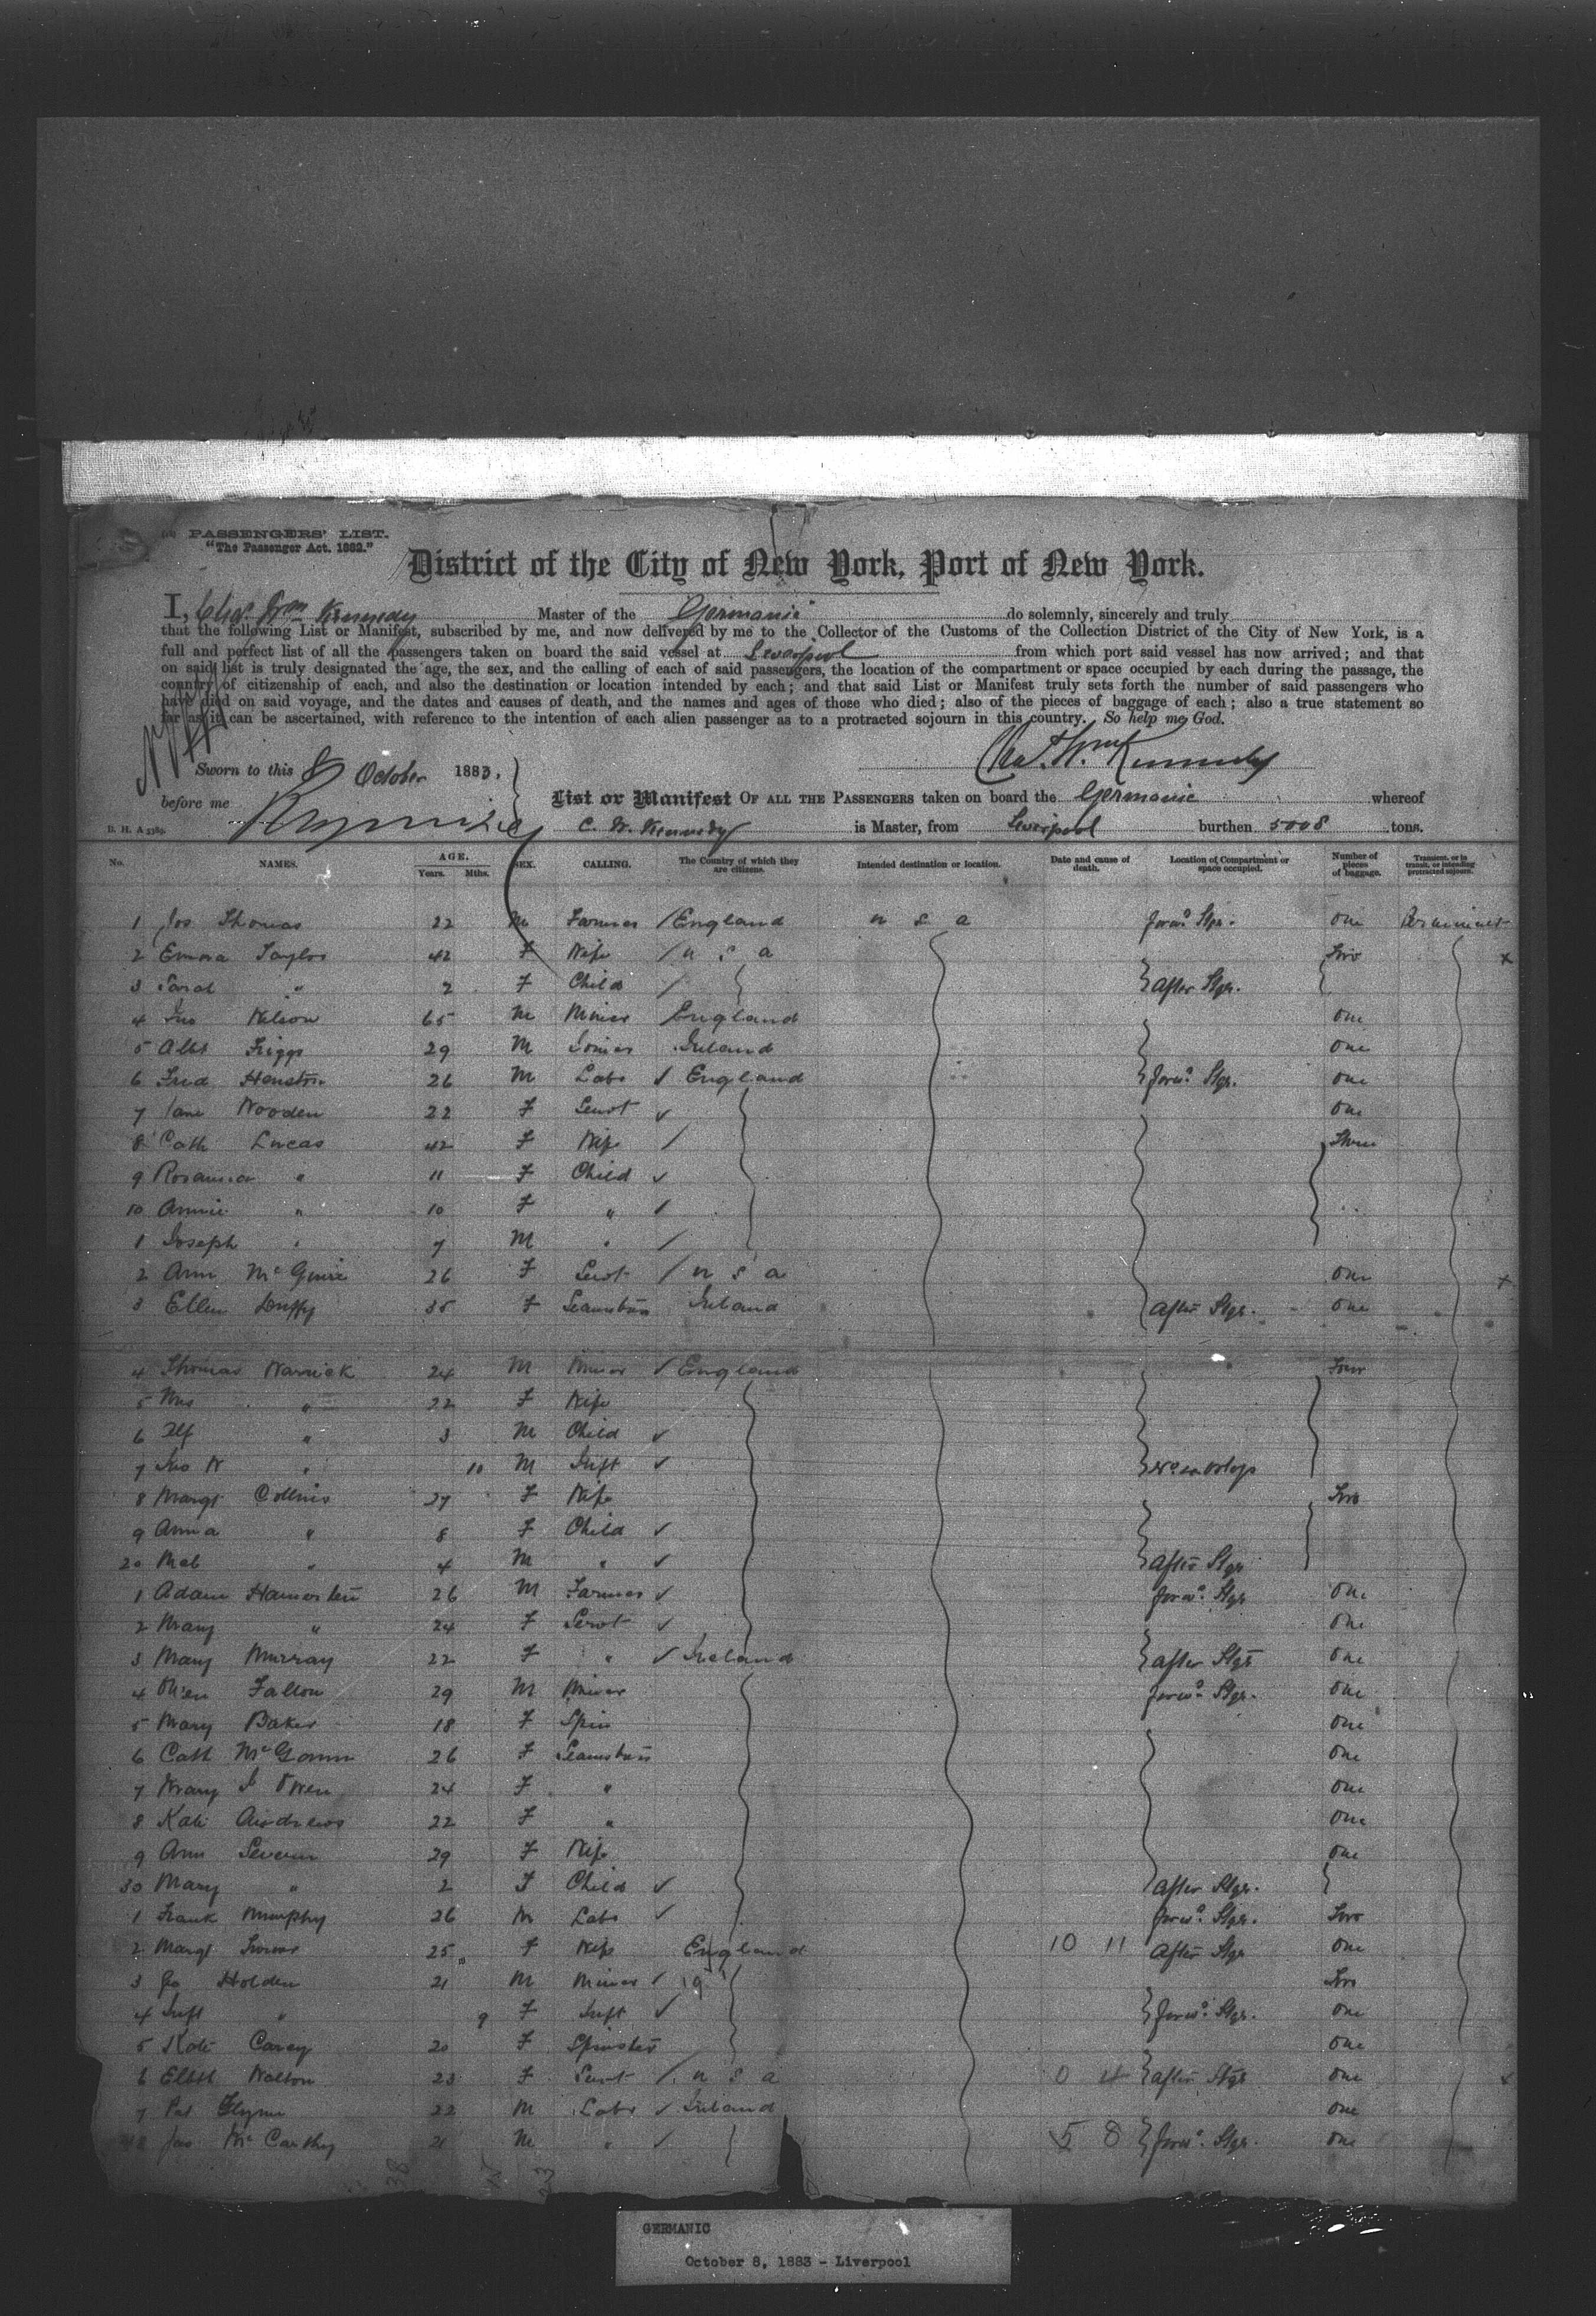 PASSENGERS' LIST.
"The Passenger Act. 1882."
District of the City of New York, Port of New York.
I, Chas. Wm Kennedy Master of the Germanic do solemnly, sincerely and truly
that the following List or Manifest, subscribed by me, and now delivered by me to the Collector of the Customs of the Collection District of the City of New York, is a
full and perfect list of all the passengers taken on board the said vessel at Liverpool from which port said vessel has now arrived; and that
on said list is truly designated the age, the sex, and the calling of each of said passengers, the location of the compartment or space occupied by each during the passage, the
country of citizenship of each, and also the destination or location intended by each; and that said List or Manifest truly sets forth the number of said passengers who
have died on said voyage, and the dates and causes of death, and the names and ages of those who died; also of the pieces of baggage of each; also a true statement so
far as it can be ascertained, with reference to the intention of each alien passenger as to a protracted sojourn in this country. So help me God.
Chas. Wm Kennedy
Sworn to this 8 October 1883.
before me
List or Manifest OF ALL THE PASSENGERS taken on board the Germanic whereof
C. W. Kennedy is Master, from Liverpool burthen 5008 tons.
No. NAMES. AGE. Years. Mths. SEX. CALLING. The Country of which they are citizens. Intended destination or location. Date and cause of death. Location of Compartment or space occupied. Number of pieces of baggage. Transient, or in transit, or intending protracted sojourn.
1 Jos Thomas 22 M Farmer / England u s a forwd Stge. one Permanent
2 Emma Taylor 42 F Wife / u s a Two x
3 Sarah " 2 F Child / After Stge.
4 Jno Wilson 65 M Miner England one
5 Albt Triggs 29 M Joiner Ireland one
6 Fred Henston 26 M Labr ✓ England forwd Stge. one
7 Jane Wooden 22 F Servt ✓ one
8 Cath Lucas 42 F Wife / Three
9 Rosanna " 11 F Child ✓
10 Annie " 10 F " ✓
1 Joseph " 7 M " /
2 Ann McGuire 26 F Servt / u s a one x
3 Ellen Duffy 35 F Seamstress Ireland After Stge. one
4 Thomas Warwick 24 M Miner ✓ England Four
5 Mrs " 22 F Wife
6 Alf " 3 M Child ✓
7 Jno W " 10 M Inft ✓
8 Margt Collins 27 F Wife Two
9 Anna " 8 F Child ✓
20 " 4 M " ✓ After Stge
1 Adam 26 M Farmer ✓ forwd Stge one
2 Mary " 24 F Servt ✓ one
3 Mary Murray 22 F " ✓ Ireland After Stge one
4 Owen Fallon 29 M Miner forwd Stge. one
5 Mary Baker 18 F Spin one
6 Cath McGowan 26 F Seamstress one
7 Mary J Owen 24 F " one
8 Kate Andrews 22 F " one
9 Ann 29 F Wife one
30 Mary " 2 F Child ✓ After Stge.
1 Frank Murphy 26 M Labr ✓ forwd Stge. Two
2 Margt 25 F Wife England 10 11 After Stge one
3 Holden 21 M Miner ✓ Two
4 Inft " 9 F Inft ✓ forwd Stge. one
5 Kate Carey 20 F Spinster one
6 Elbth Walton 23 F Servt / u s a 0 4 After Stge one
7 Pat Glynn 22 M Labr ✓ Ireland one
8 Jas McCarthy 21 M " ✓ 5 8 forwd Stge. one
GERMANIC
October 8, 1883 - Liverpool